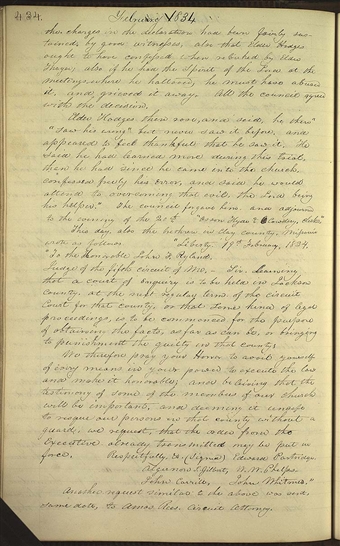 434. February 1834
the charges in the declaration had been fairly sus-
tained, by good witnesses, also that Elder Hodges
ought to have confessed when rebuked by Elder
Thayer; also, if he had the Spirit of the Lord at the
meetings, where he hallooed, he must have abused
it, and grieved it away. All the council agreed
with the decision.
Elder Hodges then rose, and said, he then
"saw his error," but never saw it before, and
appeared to feel thankful that he saw it. He
said he had learned more during this trial,
than he had since he came into the church
confessed freely his error, and said he would
attend to overcoming that evil, the Lord being
his helper." The council forgave him, and adjourned
to the evening of the 20th "Orson Hyde & O Cowdery, Clerks."
This day, also the brethren in Clay county, Missouri
wrote as follows. "Liberty 19th February, 1834.
"To the Honorable John F. Ryland.
Judge of the fifth circuit of Mo, - Sir, Learning
that a court of enquiry is to be held in Jackson
County, at the next regular term of the circuit
Court for that County, or that some kind of legal
proceedings, is to be commenced for the purpose
of obtaining the facts, so far as can be, or bringing
to punishment the guilty in that county;
We therefore pray your Honor to avail yourself
of every means in your power to execute the law
and make it honorable; and believing that the
testimony of some of the members of our church
will be important, and deeming it unsafe
to risque our persons in that county without a
guard, we request, that the order from the
Executive already transmitted may be put in
force. Respectfully, &c. (Signed) Edward Partridge
Algernon S. Gilbert, W. W. Phelps.
John Corrill, John Whitmer."
Another request similar to the above was sent,
same date, to Amos Rees. Circuit Attorney.